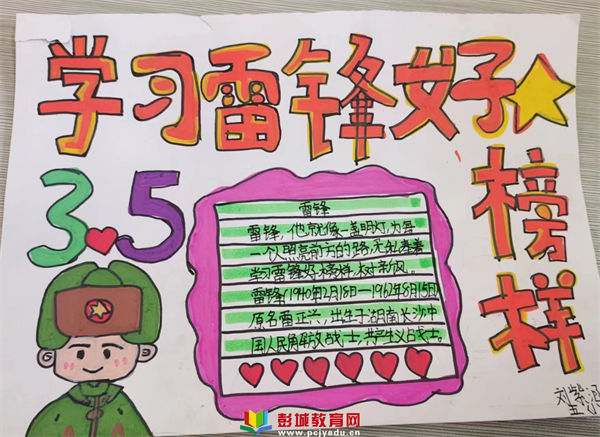 学习雷锋好
榜样
3.5
雷锋
雷锋,他就像一盏明灯,为每
一个人照亮前方的路,无私奉献
学习雷锋好榜样,树新风。
雷锋(1940年12月18日—1962年8月15日)
原名雷正兴,出生于湖南长沙,中
国人民解放战士,共产主义战士。
刘紫涵
彭城教育网
www.pcjyedu.cn